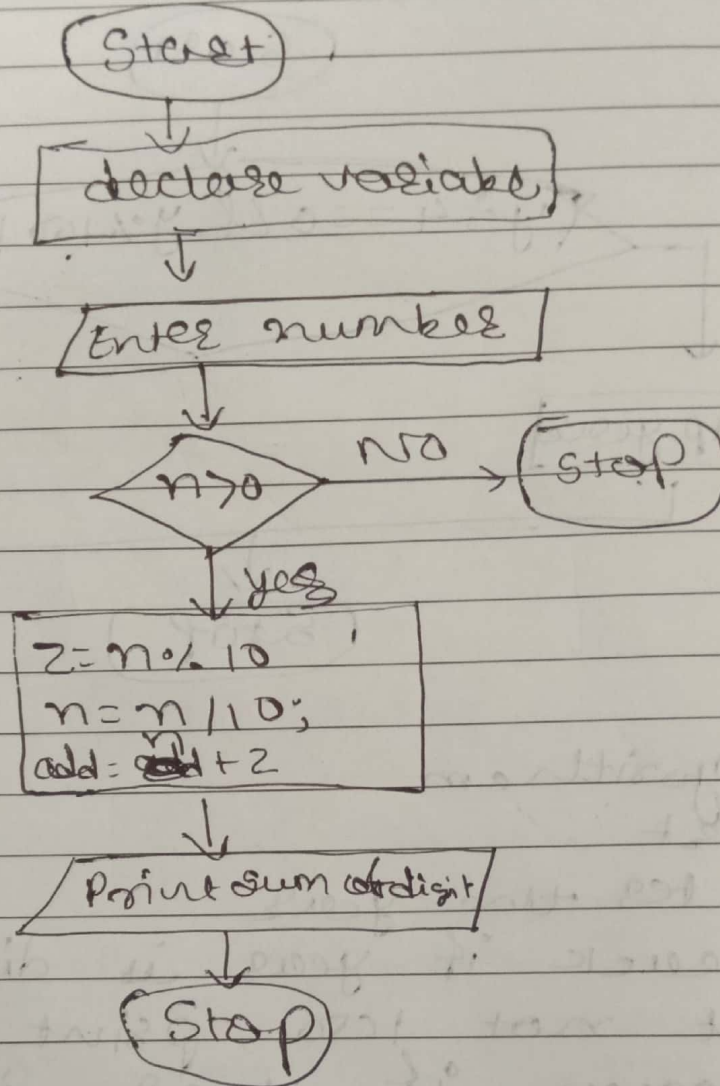 Start
declare variable
Enter number
n>0
NO
Stop
yes
z = n % 10
n = n / 10;
add = n + z
Print sum of digit
Stop